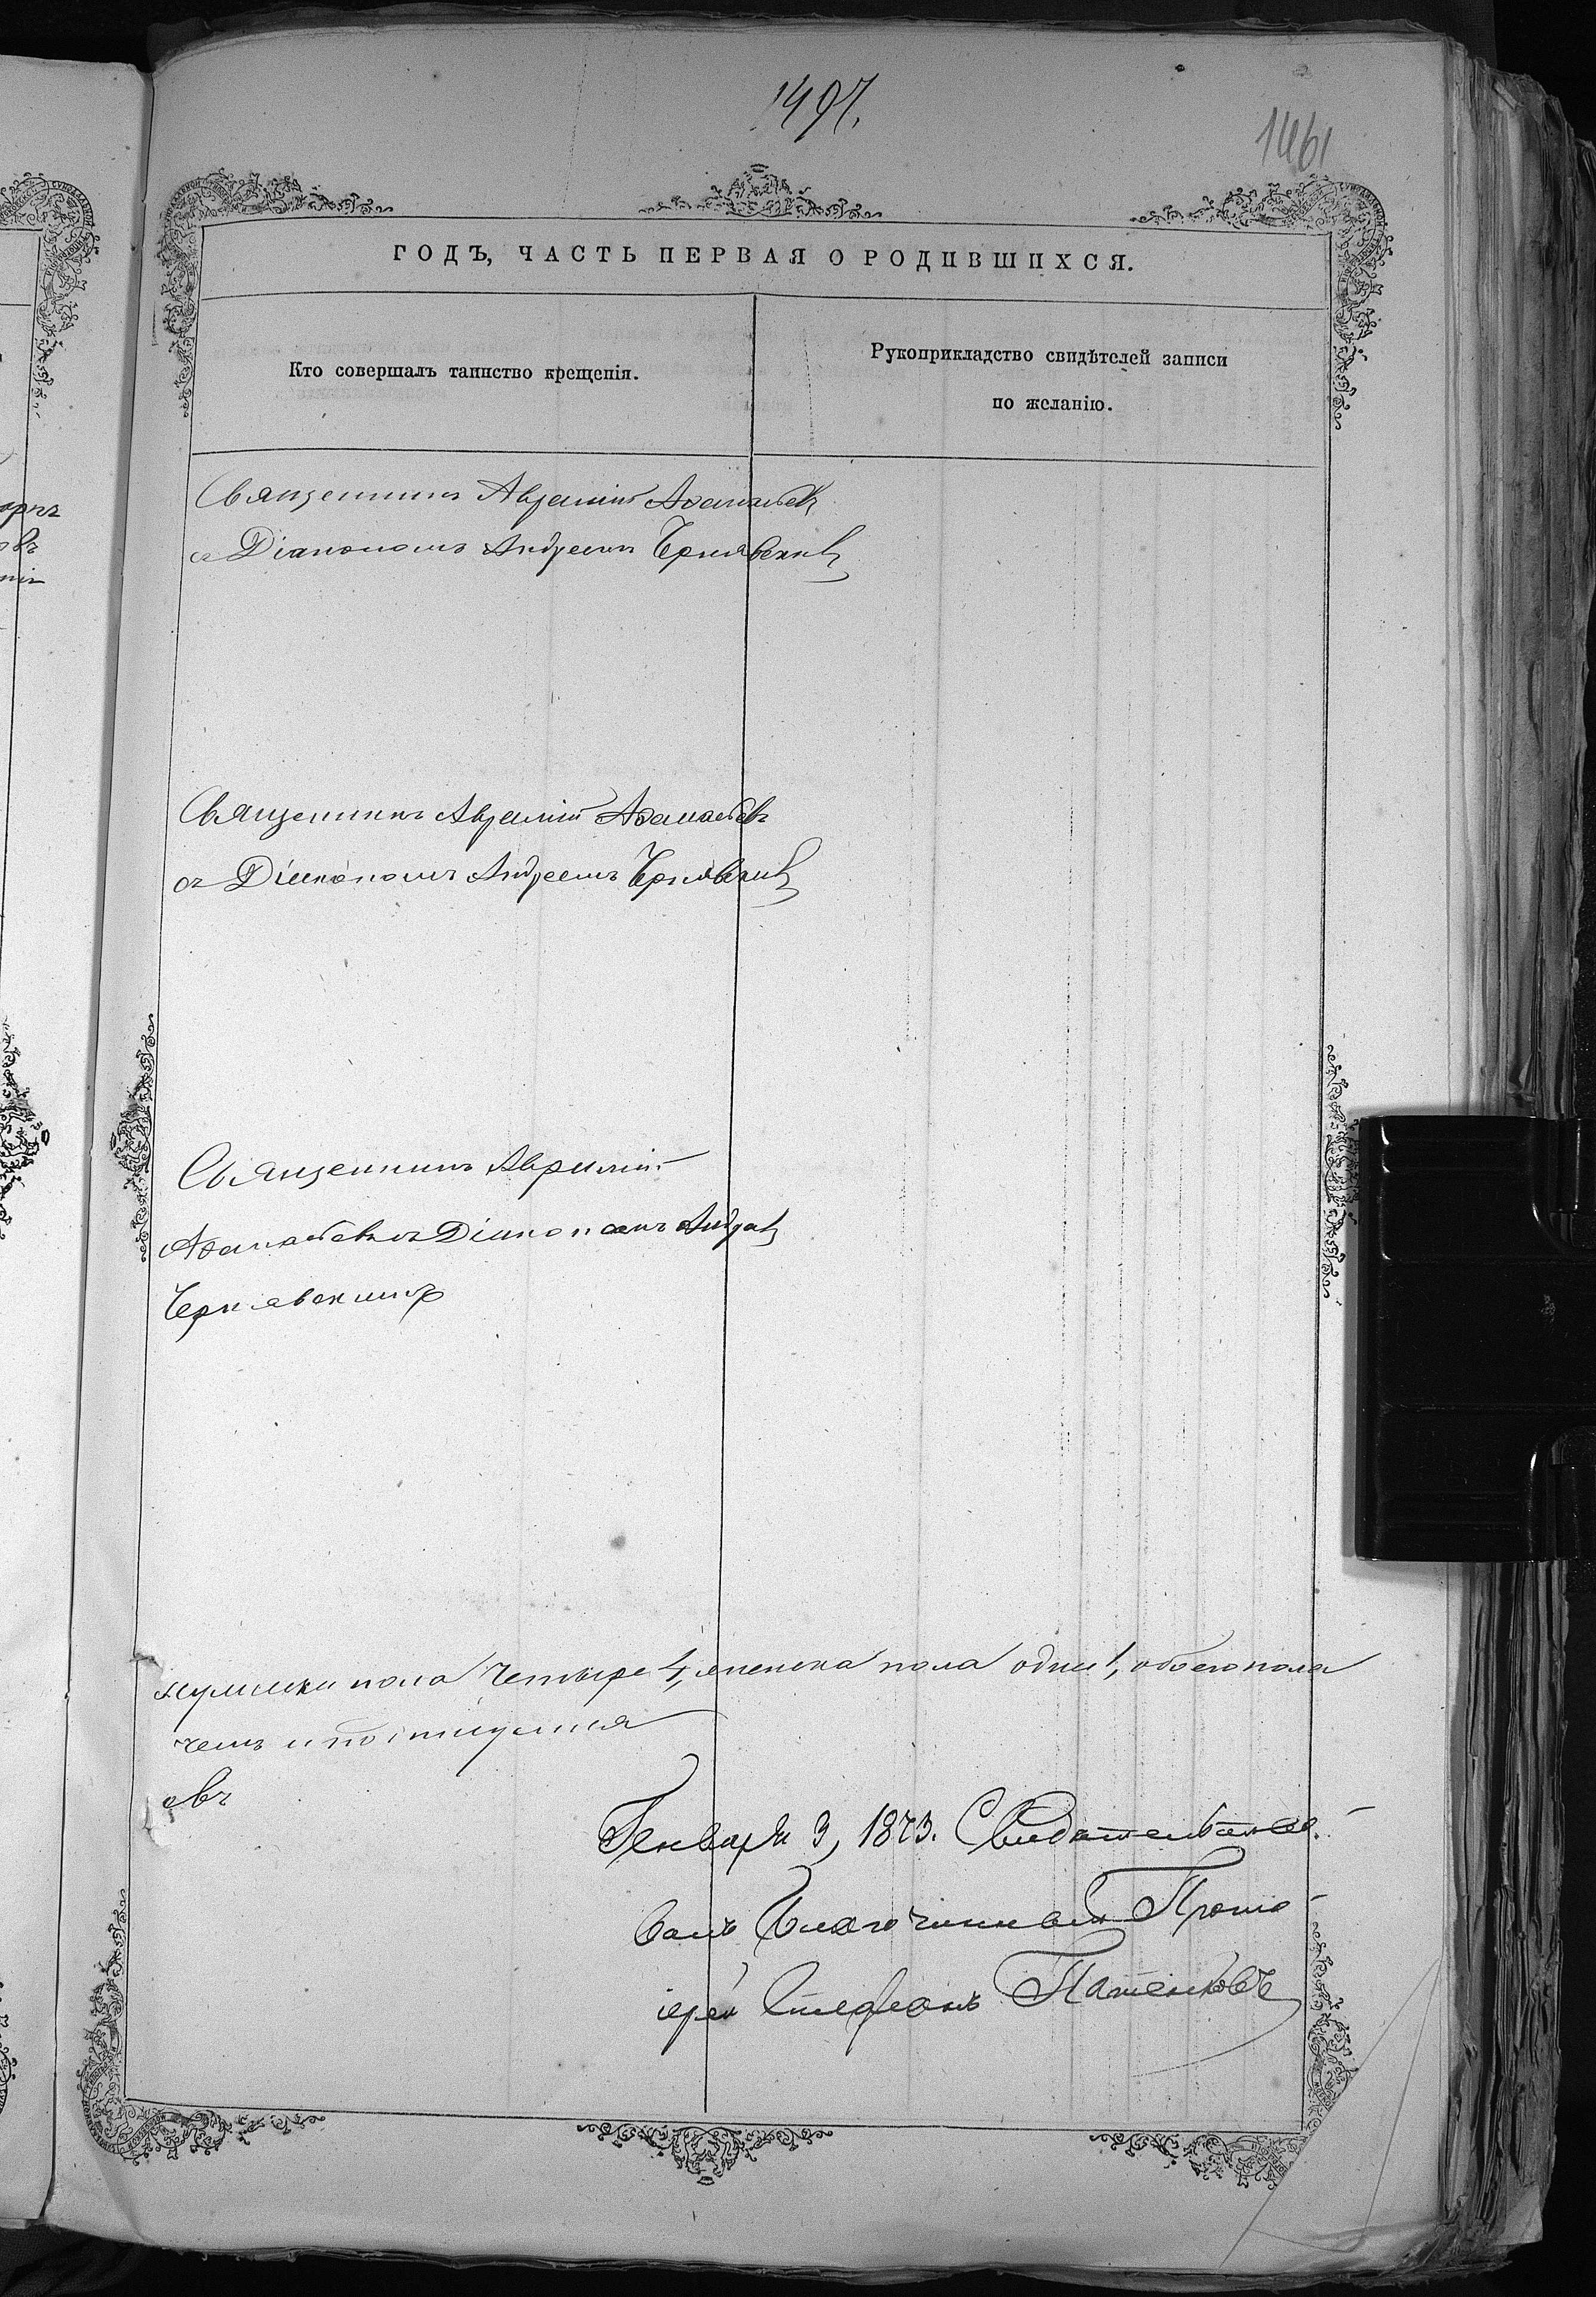 1497.
1461
ГОДЪ, ЧАСТЬ ПЕРВАЯ О РОДИВШИХСЯ.
Кто совершалъ таинство крещенія.
Рукоприкладство свидѣтелей записи
по желанію.
Священникъ Аврамій Аѳанасьевъ
съ Діакономъ Андреемъ Чернявскимъ
Священникъ Аврамій Аѳанасьевъ
съ Діакономъ Андреемъ Чернявскимъ
Священникъ Аврамій
Аѳанасьевъ съ Діакономъ Андреемъ
Чернявскимъ
мужеска пола четыре 4, женска пола одна 1, обоего пола
чемъ и
овъ
Генваря 3, 1873. Свидѣтельство-
валъ Благочинный Прото-
іерей Стефанъ